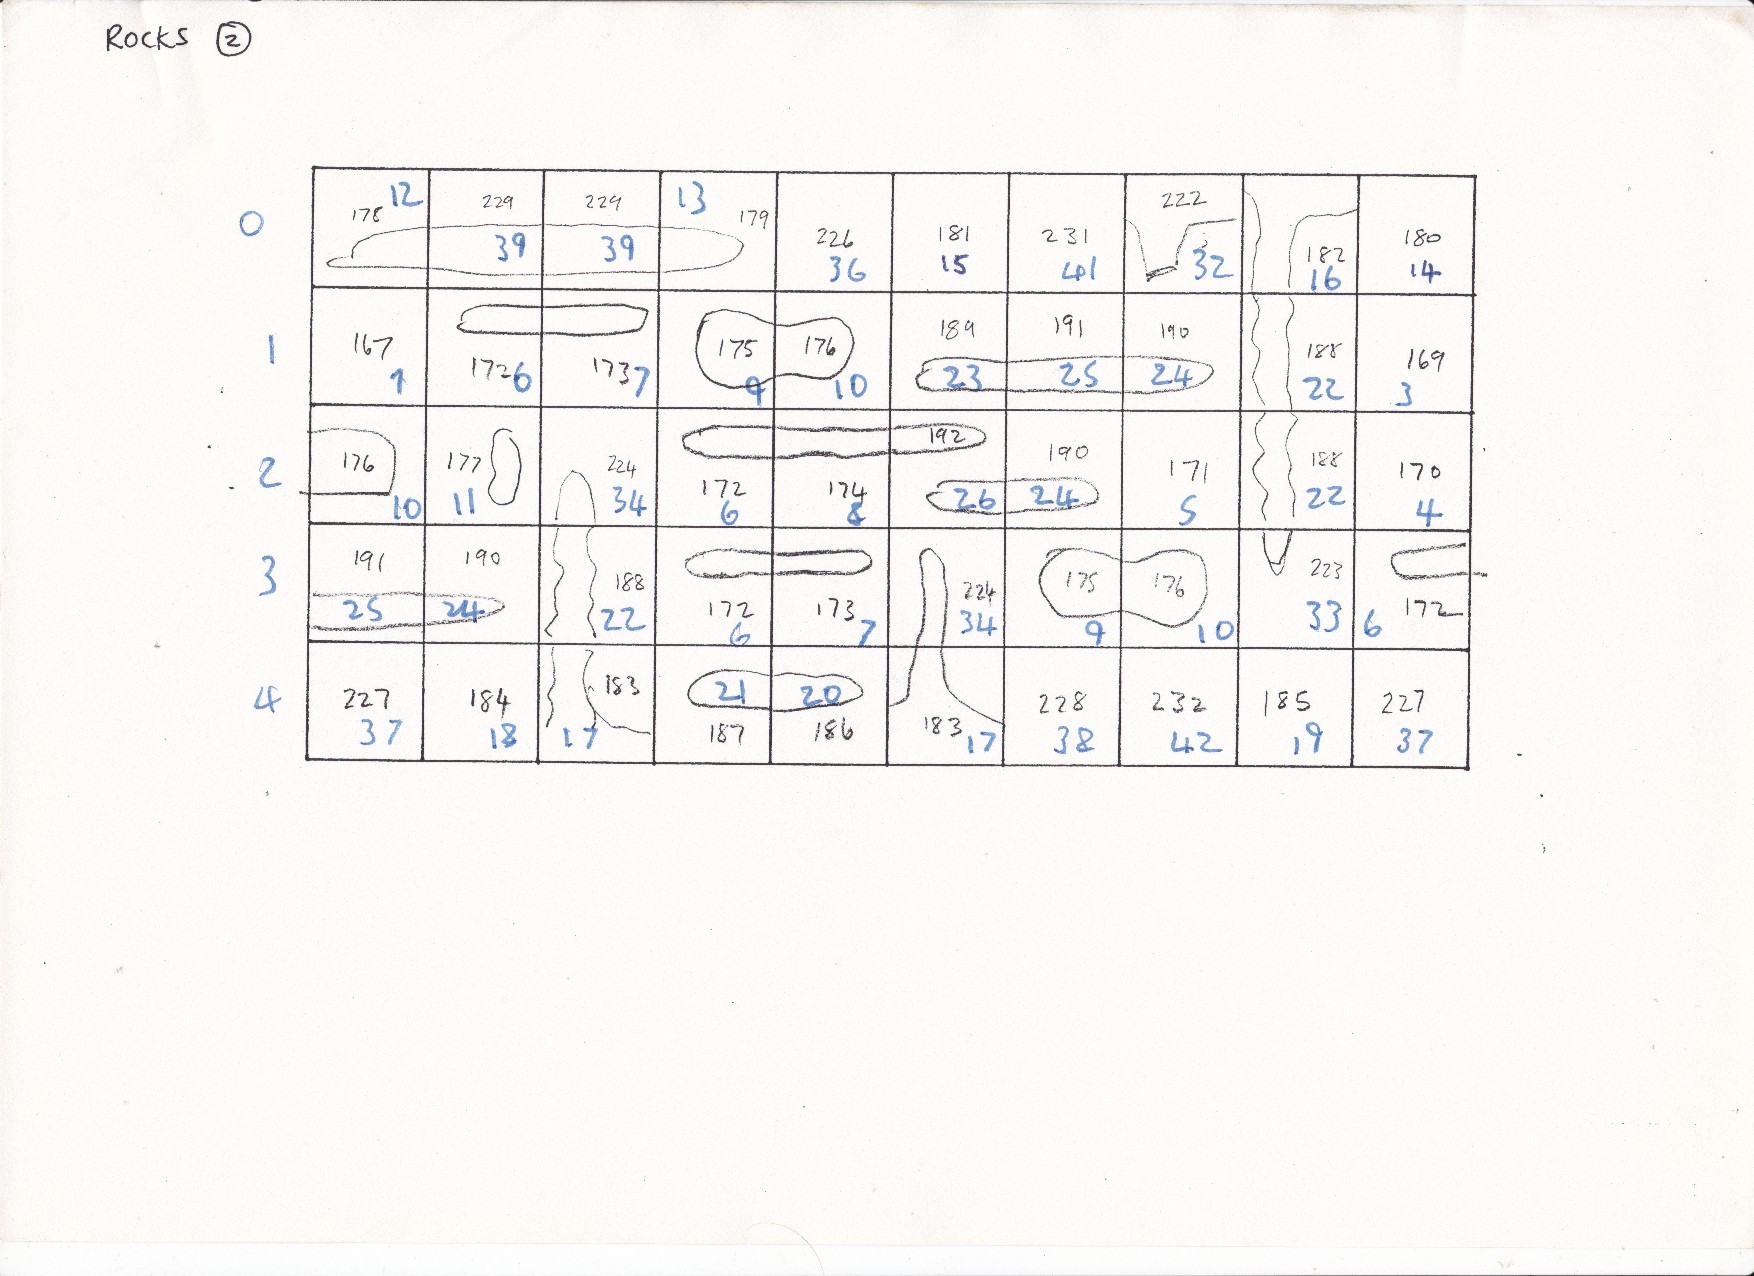 ROCKS 2
12 229 229 13 222
178 179
0 39 39 226 181 231 32 182 180
36 15 41 16 14
1 167 175 176 189 191 190 188 169
1 172 6 173 7 9 10 23 25 24 22 3
192
2 176 177 224 190 171 188 170
10 11 34 172 174 26 24 22
6 8 5 4
3 191 190 188 175 176 223
25 24 22 172 173 224 33 6 172
6 7 34 9 10
4 227 184 183 21 20 228 232 185 227
37 18 17 187 186 183 17 38 42 19 37